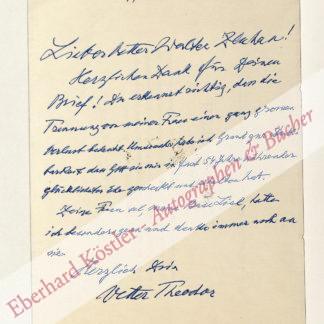 Lieber Vetter Walther Zluhan!
Herzlichen Dank für Deinen
Brief! Du erkennst richtig, dass die
Trennung von meiner Frau einen ganz grossen
Verlust bedeutet. Umso mehr habe ich Grund
dankbar, dass Gott sie mir in fast 54 Jahren
glücklichster Ehe geschenkt und erhalten hat.
Deine Frau
ich besonders gern und denke immer noch an
sie.
Herzlich Dein
Vetter Theodor
Eberhard Köstler - Autographen & Bücher